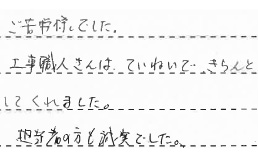 ご苦労様でした。
工事職人さんは、ていねいで、きちんと
してくれました。
担当者の方も誠実でした。